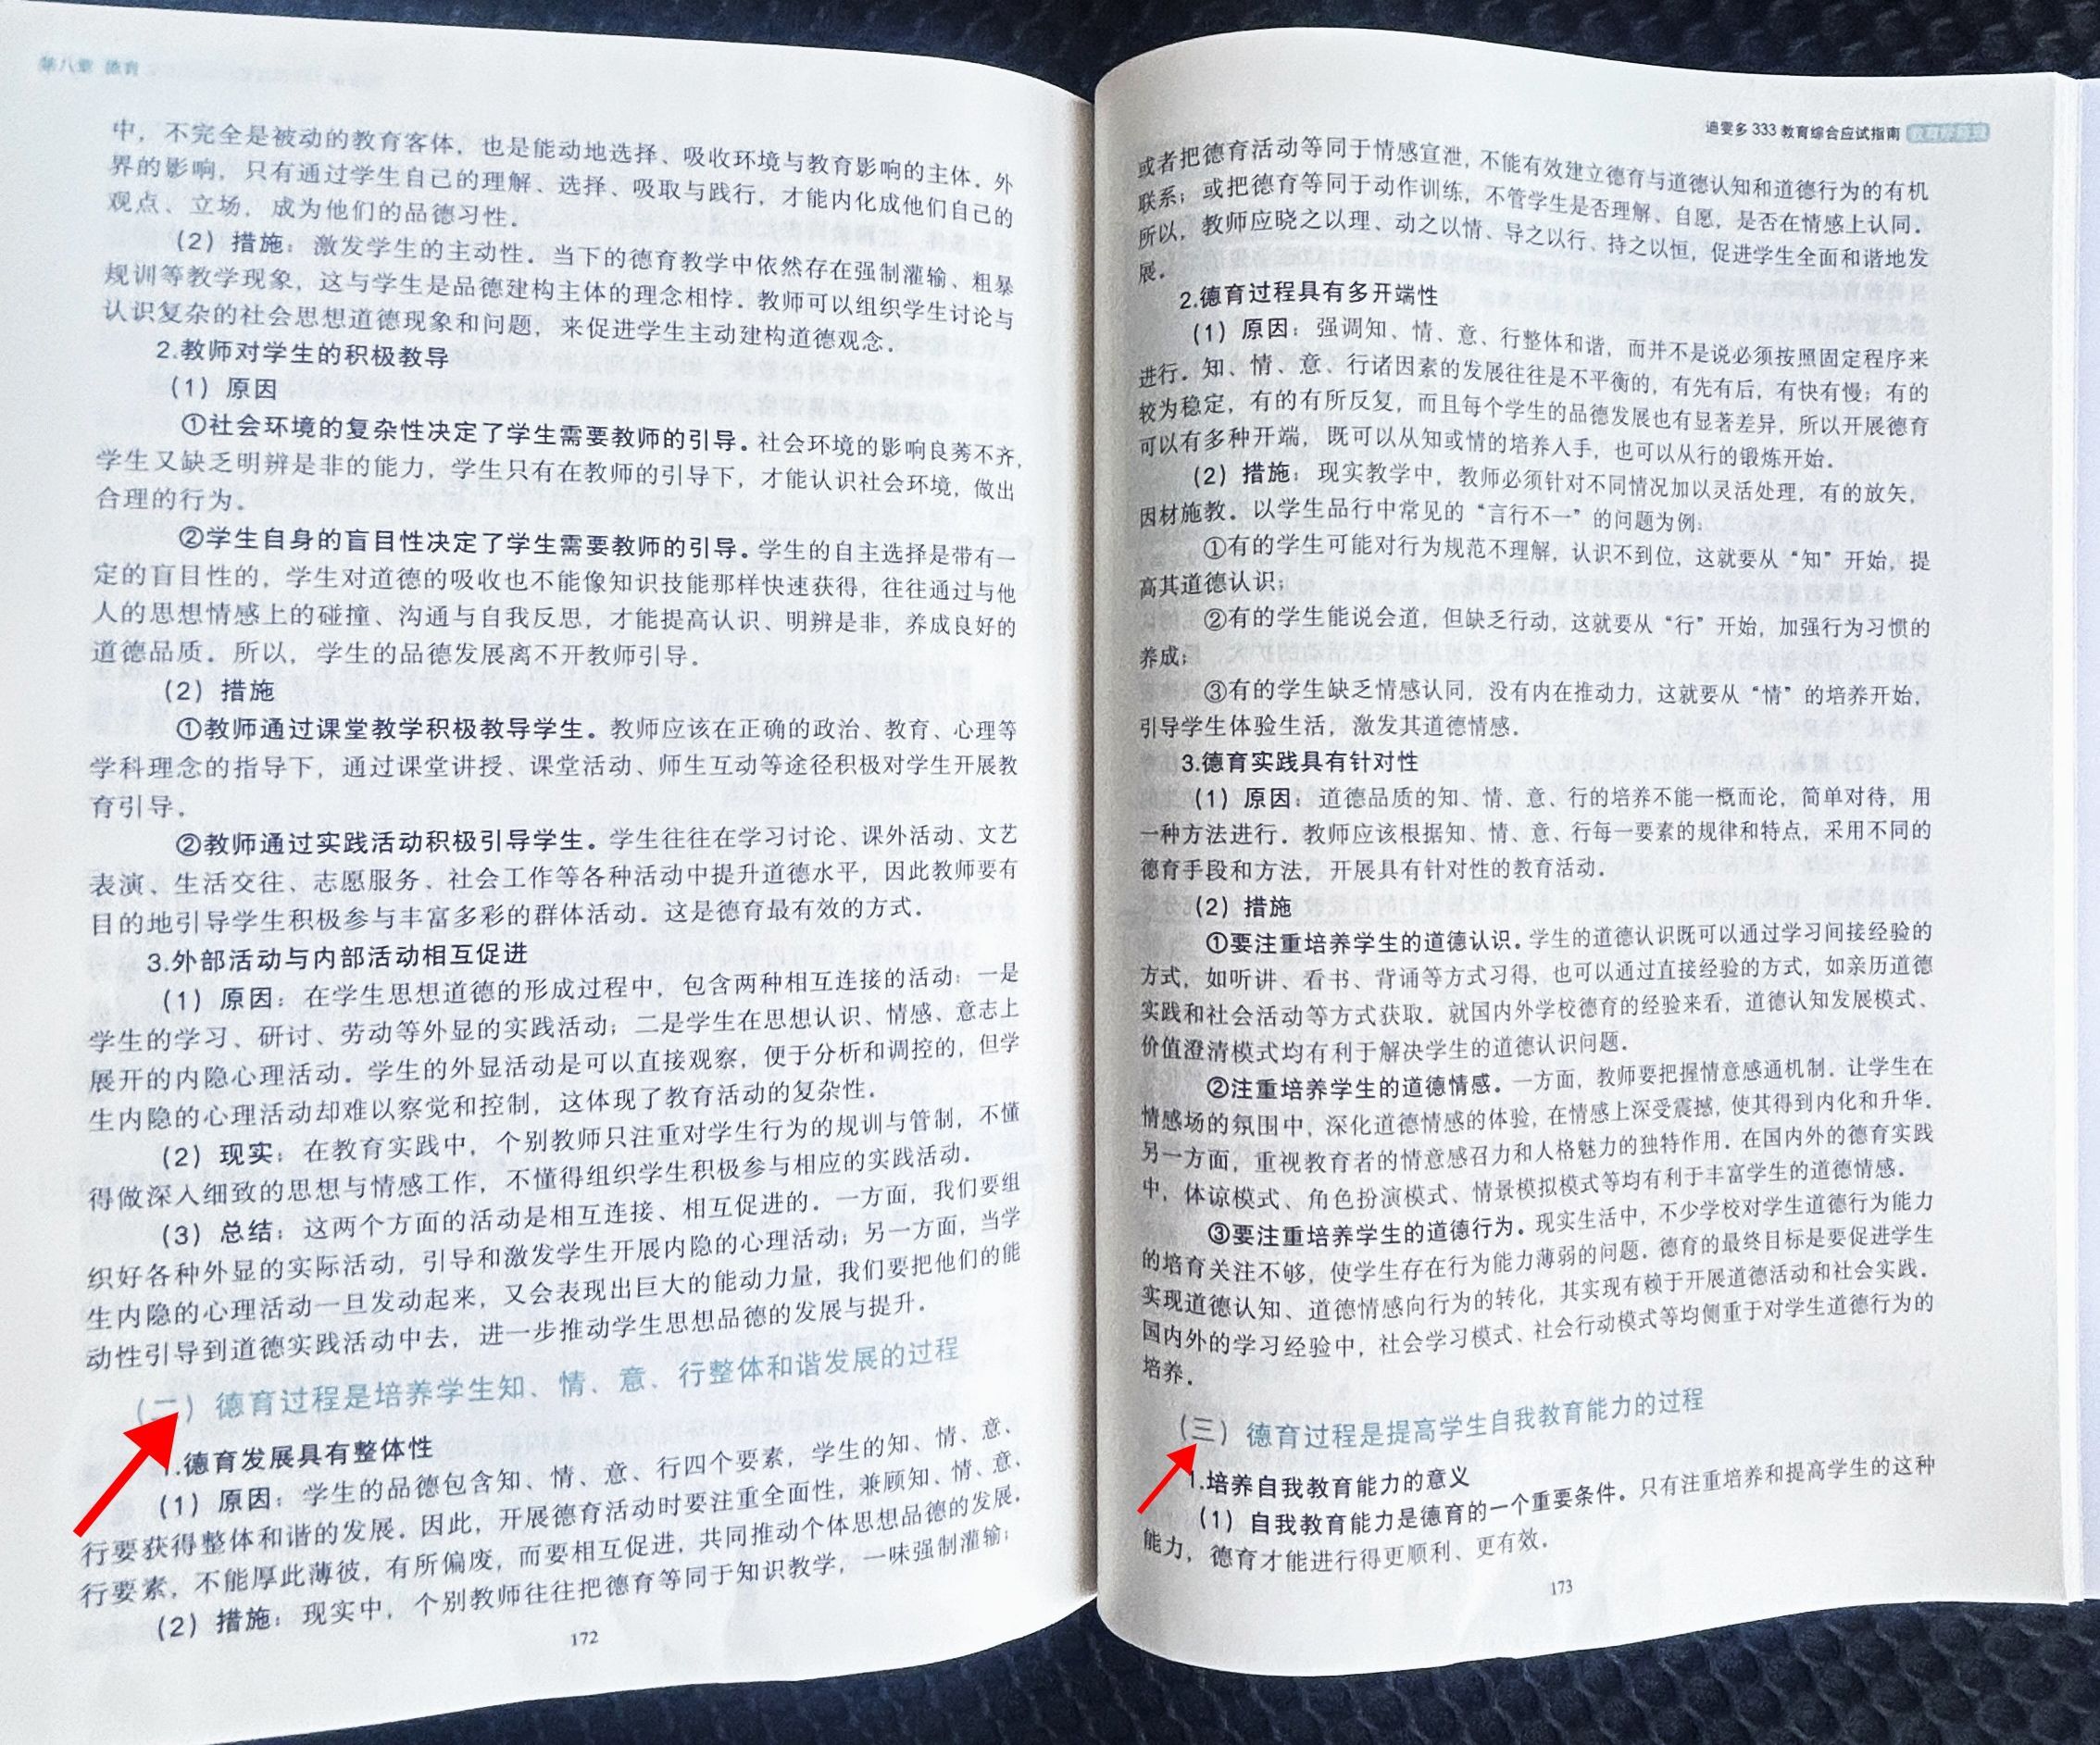 第八章 德育
中，不完全是被动的教育客体，也是能动地选择、吸收环境与教育影响的主体。外
界的影响，只有通过学生自己的理解、选择、吸取与践行，才能内化成他们自己的
观点、立场，成为他们的品德习性。
（2）措施：激发学生的主动性。当下的德育教学中依然存在强制灌输、粗暴
规训等教学现象，这与学生是品德建构主体的理念相悖。教师可以组织学生讨论与
认识复杂的社会思想道德现象和问题，来促进学生主动建构道德观念。
2.教师对学生的积极教导
（1）原因
①社会环境的复杂性决定了学生需要教师的引导。社会环境的影响良莠不齐，
学生又缺乏明辨是非的能力，学生只有在教师的引导下，才能认识社会环境，做出
合理的行为。
②学生自身的盲目性决定了学生需要教师的引导。学生的自主选择是带有一
定的盲目性的，学生对道德的吸收也不能像知识技能那样快速获得，往往通过与他
人的思想情感上的碰撞、沟通与自我反思，才能提高认识、明辨是非，养成良好的
道德品质。所以，学生的品德发展离不开教师引导。
（2）措施
①教师通过课堂教学积极教导学生。教师应该在正确的政治、教育、心理等
学科理念的指导下，通过课堂讲授、课堂活动、师生互动等途径积极对学生开展教
育引导。
②教师通过实践活动积极引导学生。学生往往在学习讨论、课外活动、文艺
表演、生活交往、志愿服务、社会工作等各种活动中提升道德水平，因此教师要有
目的地引导学生积极参与丰富多彩的群体活动。这是德育最有效的方式。
3.外部活动与内部活动相互促进
（1）原因：在学生思想道德的形成过程中，包含两种相互连接的活动：一是
学生的学习、研讨、劳动等外显的实践活动；二是学生在思想认识、情感、意志上
展开的内隐心理活动。学生的外显活动是可以直接观察，便于分析和调控的，但学
生内隐的心理活动却难以察觉和控制，这体现了教育活动的复杂性。
（2）现实：在教育实践中，个别教师只注重对学生行为的规训与管制，不懂
得做深入细致的思想与情感工作，不懂得组织学生积极参与相应的实践活动。
（3）总结：这两个方面的活动是相互连接、相互促进的。一方面，我们要组
织好各种外显的实际活动，引导和激发学生开展内隐的心理活动；另一方面，当学
生内隐的心理活动一旦发动起来，又会表现出巨大的能动力量，我们要把他们的能
动性引导到道德实践活动中去，进一步推动学生思想品德的发展与提升。
（二）德育过程是培养学生知、情、意、行整体和谐发展的过程
1.德育发展具有整体性
（1）原因：学生的品德包含知、情、意、行四个要素，学生的知、情、意、
行要获得整体和谐的发展。因此，开展德育活动时要注重全面性，兼顾知、情、意、
行要素，不能厚此薄彼，有所偏废，而要相互促进，共同推动个体思想品德的发展。
（2）措施：现实中，个别教师往往把德育等同于知识教学，一味强制灌输；
172
迪雯多 333 教育综合应试指南
或者把德育活动等同于情感宣泄，不能有效建立德育与道德认知和道德行为的有机
联系；或把德育等同于动作训练，不管学生是否理解、自愿，是否在情感上认同。
所以，教师应晓之以理、动之以情、导之以行、持之以恒，促进学生全面和谐地发
展。
2.德育过程具有多开端性
（1）原因：强调知、情、意、行整体和谐，而并不是说必须按照固定程序来
进行。知、情、意、行诸因素的发展往往是不平衡的，有先有后，有快有慢；有的
较为稳定，有的有所反复，而且每个学生的品德发展也有显著差异，所以开展德育
可以有多种开端，既可以从知或情的培养入手，也可以从行的锻炼开始。
（2）措施：现实教学中，教师必须针对不同情况加以灵活处理，有的放矢，
因材施教。以学生品行中常见的“言行不一”的问题为例：
①有的学生可能对行为规范不理解，认识不到位，这就要从“知”开始，提
高其道德认识；
②有的学生能说会道，但缺乏行动，这就要从“行”开始，加强行为习惯的
养成；
③有的学生缺乏情感认同，没有内在推动力，这就要从“情”的培养开始，
引导学生体验生活，激发其道德情感。
3.德育实践具有针对性
（1）原因：道德品质的知、情、意、行的培养不能一概而论，简单对待，用
一种方法进行。教师应该根据知、情、意、行每一要素的规律和特点，采用不同的
德育手段和方法，开展具有针对性的教育活动。
（2）措施
①要注重培养学生的道德认识。学生的道德认识既可以通过学习间接经验的
方式，如听讲、看书、背诵等方式习得，也可以通过直接经验的方式，如亲历道德
实践和社会活动等方式获取。就国内外学校德育的经验来看，道德认知发展模式、
价值澄清模式均有利于解决学生的道德认识问题。
②注重培养学生的道德情感。一方面，教师要把握情意感通机制，让学生在
情感场的氛围中，深化道德情感的体验，在情感上深受震撼，使其得到内化和升华。
另一方面，重视教育者的情意感召力和人格魅力的独特作用。在国内外的德育实践
中，体谅模式、角色扮演模式、情景模拟模式等均有利于丰富学生的道德情感。
③要注重培养学生的道德行为。现实生活中，不少学校对学生道德行为能力
的培育关注不够，使学生存在行为能力薄弱的问题。德育的最终目标是要促进学生
实现道德认知、道德情感向行为的转化，其实现有赖于开展道德活动和社会实践。
国内外的学习经验中，社会学习模式、社会行动模式等均侧重于对学生道德行为的
培养。
（三）德育过程是提高学生自我教育能力的过程
1.培养自我教育能力的意义
（1）自我教育能力是德育的一个重要条件。只有注重培养和提高学生的这种
能力，德育才能进行得更顺利、更有效。
173